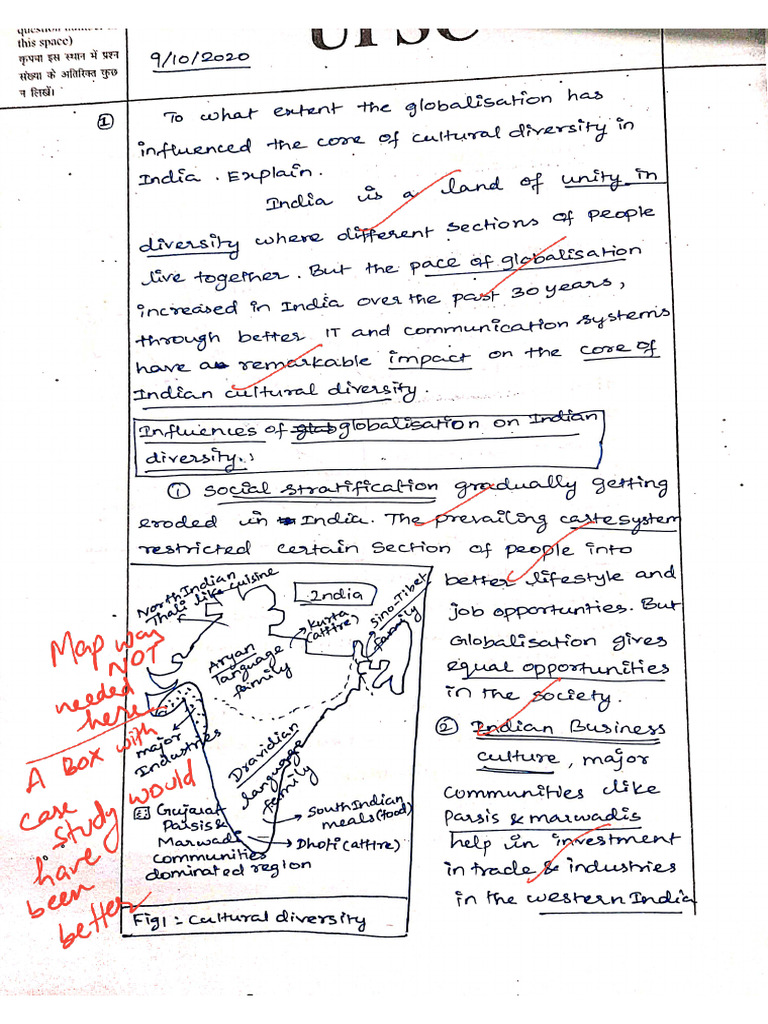 question number in
this space)
कृपया इस स्थान में प्रश्न
संख्या के अतिरिक्त कुछ
न लिखें।
UPSC
9/10/2020
① To what extent the globalisation has
influenced the core of cultural diversity in
India. Explain.
India is a land of unity in
diversity where different sections of people
live together. But the pace of globalisation
increased in India over the past 30 years,
through better IT and communication systems
have a remarkable impact on the core of
Indian cultural diversity.
Influences of globalisation on Indian
diversity:
① Social stratification gradually getting
eroded in India. The prevailing caste system
restricted certain section of people into
better lifestyle and
job opportunties. But
Globalisation gives
equal opportunities
in the society.
② Indian Business
culture, major
communities like
Parsis & marwadis
help in investment
in trade & industries
in the western India
North Indian
Thali like cuisine
India
Kurta
(attire)
Sino-Tibet
family
Aryan
language
family
major
Industries
Dravidian
language
family
Gujarat
Parsis &
Marwadi
communities
dominated region
South Indian
meals (food)
Dhoti (attire)
Fig 1: Cultural diversity
Map was
NOT
needed
here
A Box with
case
study would
have
been
better